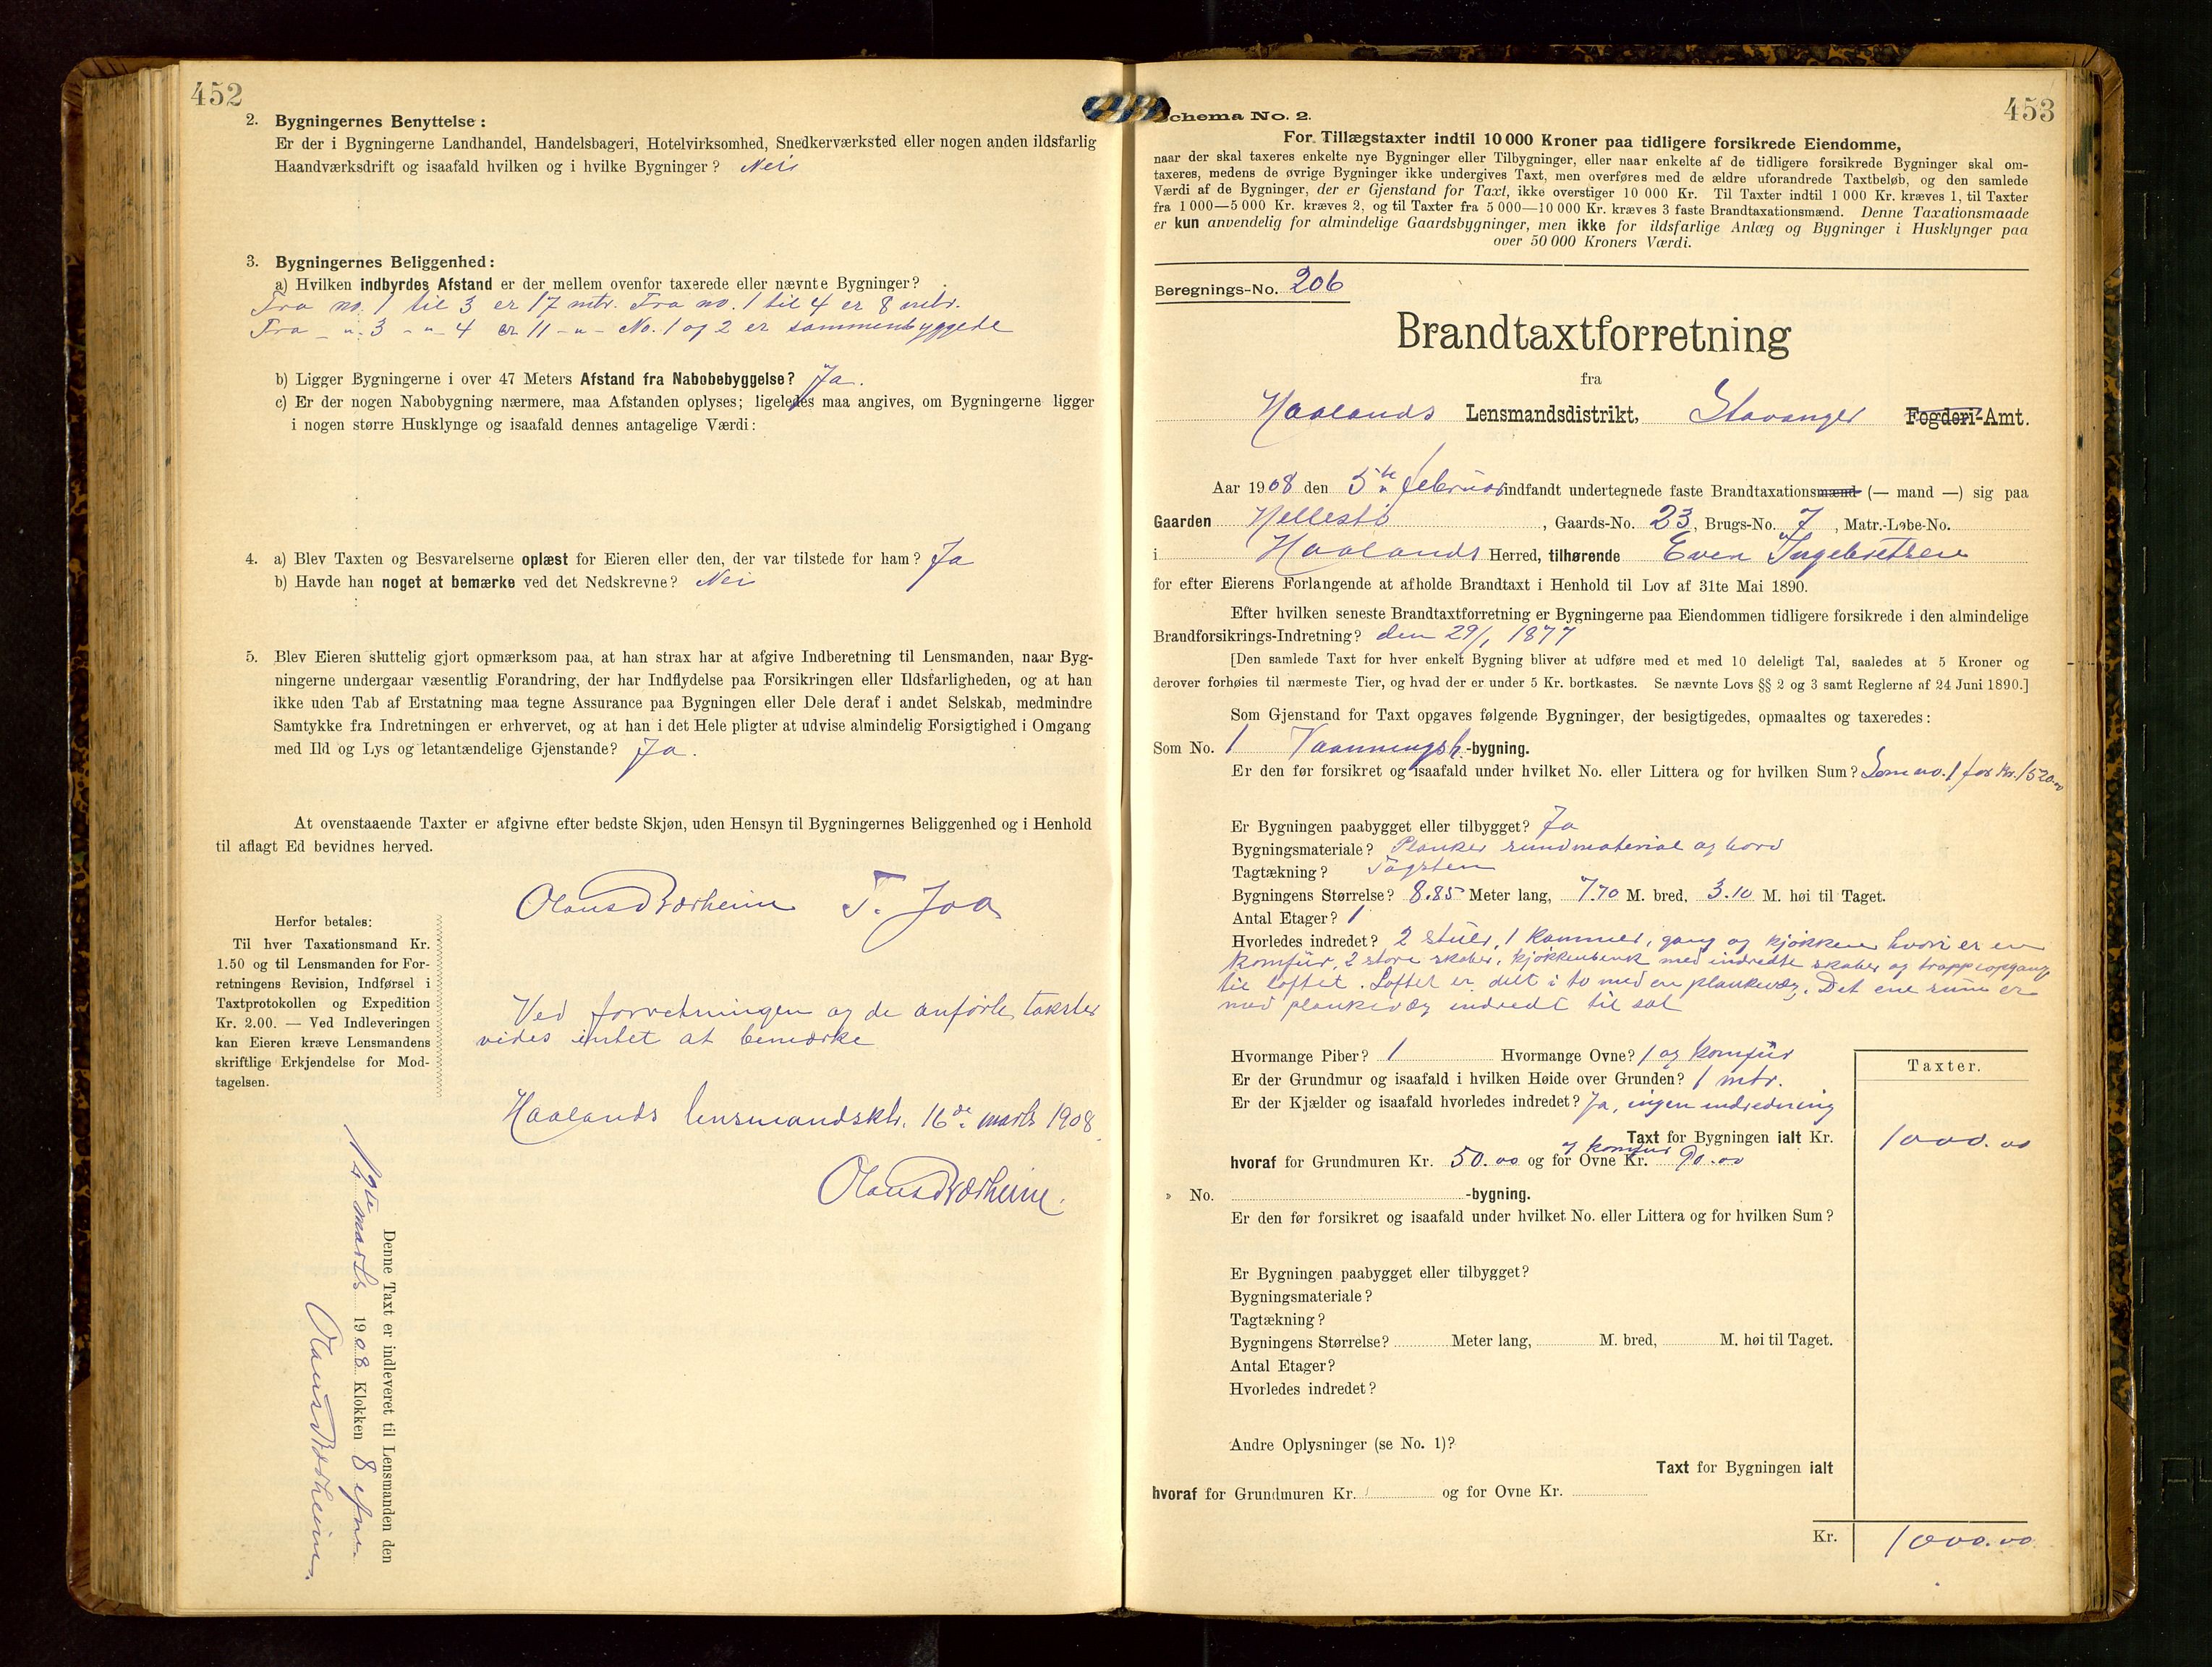 452
2. Bygningernes Benyttelse:
Er der i Bygningerne Landhandel, Handelsbageri, Hotelvirksomhed, Snedkerværksted eller nogen anden ildsfarlig
Haandværksdrift og isaafald hvilken og i hvilke Bygninger? Nei
3. Bygningernes Beliggenhed:
a) Hvilken indbyrdes Afstand er der mellem ovenfor taxerede eller nævnte Bygninger?
Fra no. 1 til 3 er 17 mtr. Fra no. 1 til 4 er 8 mtr.
Fra - " 3 - " - 4 er 11 - " - No. 1 og 2 er sammenbyggede
b) Ligger Bygningerne i over 47 Meters Afstand fra Nabobebyggelse? Ja.
c) Er der nogen Nabobygning nærmere, maa Afstanden oplyses; ligeledes maa angives, om Bygningerne ligger
i nogen større Husklynge og isaafald dennes antagelige Værdi:
4. a) Blev Taxten og Besvarelserne oplæst for Eieren eller den, der var tilstede for ham? Ja
b) Havde han noget at bemærke ved det Nedskrevne? Nei
5. Blev Eieren sluttelig gjort opmærksom paa, at han strax har at afgive Indberetning til Lensmanden, naar Byg-
ningerne undergaar væsentlig Forandring, der har Indflydelse paa Forsikringen eller Ildsfarligheden, og at han
ikke uden Tab af Erstatning maa tegne Assurance paa Bygningen eller Dele deraf i andet Selskab, medmindre
Samtykke fra Indretningen er erhvervet, og at han i det Hele pligter at udvise almindelig Forsigtighed i Omgang
med Ild og Lys og letantændelige Gjenstande? Ja.
At ovenstaaende Taxter er afgivne efter bedste Skjøn, uden Hensyn til Bygningernes Beliggenhed og i Henhold
til aflagt Ed bevidnes herved.
Olaus Bærheim T. Joa
Herfor betales:
Til hver Taxationsmand Kr.
1.50 og til Lensmanden for For-
retningens Revision, Indførsel i
Taxtprotokollen og Expedition
Kr. 2.00. — Ved Indleveringen
kan Eieren kræve Lensmandens
skriftlige Erkjendelse for Mod-
tagelsen.
Ved forretningen og de anførte takster
vides intet at bemærke
Haalands lensmandsktr. 16de marts 1908
Olaus Bærheim.
Denne Taxt er indleveret til Lensmanden den
marts 1908 Klokken 8
Olaus Bærheim.
453
Schema No. 2.
For Tillægstaxter indtil 10 000 Kroner paa tidligere forsikrede Eiendomme,
naar der skal taxeres enkelte nye Bygninger eller Tilbygninger, eller naar enkelte af de tidligere forsikrede Bygninger skal om-
taxeres, medens de øvrige Bygninger ikke undergives Taxt, men overføres med de ældre uforandrede Taxtbeløb, og den samlede
Værdi af de Bygninger, der er Gjenstand for Taxt, ikke overstiger 10 000 Kr. Til Taxter indtil 1 000 Kr. kræves 1, til Taxter
fra 1 000—5 000 Kr. kræves 2, og til Taxter fra 5 000—10 000 Kr. kræves 3 faste Brandtaxationsmænd. Denne Taxationsmaade
er kun anvendelig for almindelige Gaardsbygninger, men ikke for ildsfarlige Anlæg og Bygninger i Husklynger paa
over 50 000 Kroners Værdi.
Beregnings-No. 206
Brandtaxtforretning
fra
Haalands Lensmandsdistrikt, Stavanger Fogderi-Amt.
Aar 1908 den 5te februar indfandt undertegnede faste Brandtaxationsmænd (— mand —) sig paa
Gaarden Hellestø, Gaards-No. 23, Brugs-No. 7, Matr.-Løbe-No.
i Haalands Herred, tilhørende Even Ingebretsen
for efter Eierens Forlangende at afholde Brandtaxt i Henhold til Lov af 31te Mai 1890.
Efter hvilken seneste Brandtaxtforretning er Bygningerne paa Eiendommen tidligere forsikrede i den almindelige
Brandforsikrings-Indretning? den 29/1 1877
[Den samlede Taxt for hver enkelt Bygning bliver at udføre med et med 10 deleligt Tal, saaledes at 5 Kroner og
derover forhøies til nærmeste Tier, og hvad der er under 5 Kr. bortkastes. Se nævnte Lovs §§ 2 og 3 samt Reglerne af 24 Juni 1890.]
Som Gjenstand for Taxt opgaves følgende Bygninger, der besigtigedes, opmaaltes og taxeredes:
Som No. 1 Vaaningsh.-bygning.
Er den før forsikret og isaafald under hvilket No. eller Littera og for hvilken Sum? Som no. 1 for kr. 1520.00
Er Bygningen paabygget eller tilbygget? Ja
Bygningsmateriale? Planker rundmateriale og bord
Tagtækning? Tagsten
Bygningens Størrelse? 8.85 Meter lang, 7.70 M. bred, 3.10 M. høi til Taget.
Antal Etager? 1
Hvorledes indredet? 2 stuer, 1 kammer, gang og kjøkken hvori er en
komfur, 2 store skaber, kjøkkenbenk med indredte skaber og trappeopgang
til loftet. Loftet er delt i to med en plankevæg. Det ene rum er
med plankevæg indredt til sal
Hvormange Piber? 1 Hvormange Ovne? 1 og komfur
Er der Grundmur og isaafald i hvilken Høide over Grunden? 1 mtr.
Er der Kjælder og isaafald hvorledes indredet? Ja, ingen indredning
Taxter.
Taxt for Bygningen ialt Kr. 1000.00
hvoraf for Grundmuren Kr. 50.00 og for Ovne og komfur Kr. 90.00
» No. -bygning.
Er den før forsikret og isaafald under hvilket No. eller Littera og for hvilken Sum?
Er Bygningen paabygget eller tilbygget?
Bygningsmateriale?
Tagtækning?
Bygningens Størrelse? Meter lang, M. bred, M. høi til Taget.
Antal Etager?
Hvorledes indredet?
Andre Oplysninger (se No. 1)?
Taxt for Bygningen ialt
hvoraf for Grundmuren Kr. og for Ovne Kr.
Kr. 1000.00